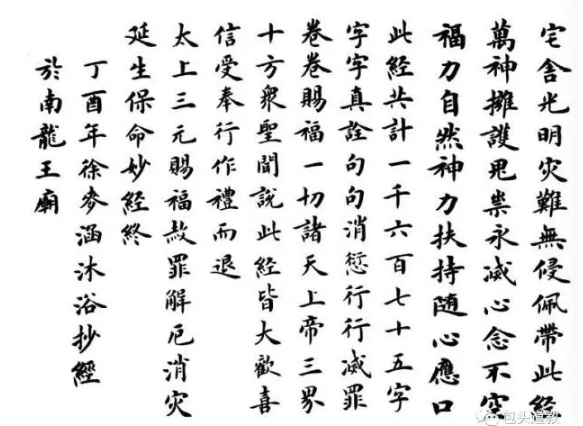 宅舍光明灾難無侵佩帶此經
萬神擁護鬼祟永滅心念不空
福力自然神力扶持随心應口
此經共計一千六百七十五字
字字真詮句句消愆行行滅罪
卷卷賜福一切諸天上帝三界
十方衆聖聞説此經皆大歡喜
信受奉行作禮而退
太上三元賜福赦罪解厄消灾
延生保命妙經終
丁酉年徐涵沐浴抄經
於南龍王廟
包头道教